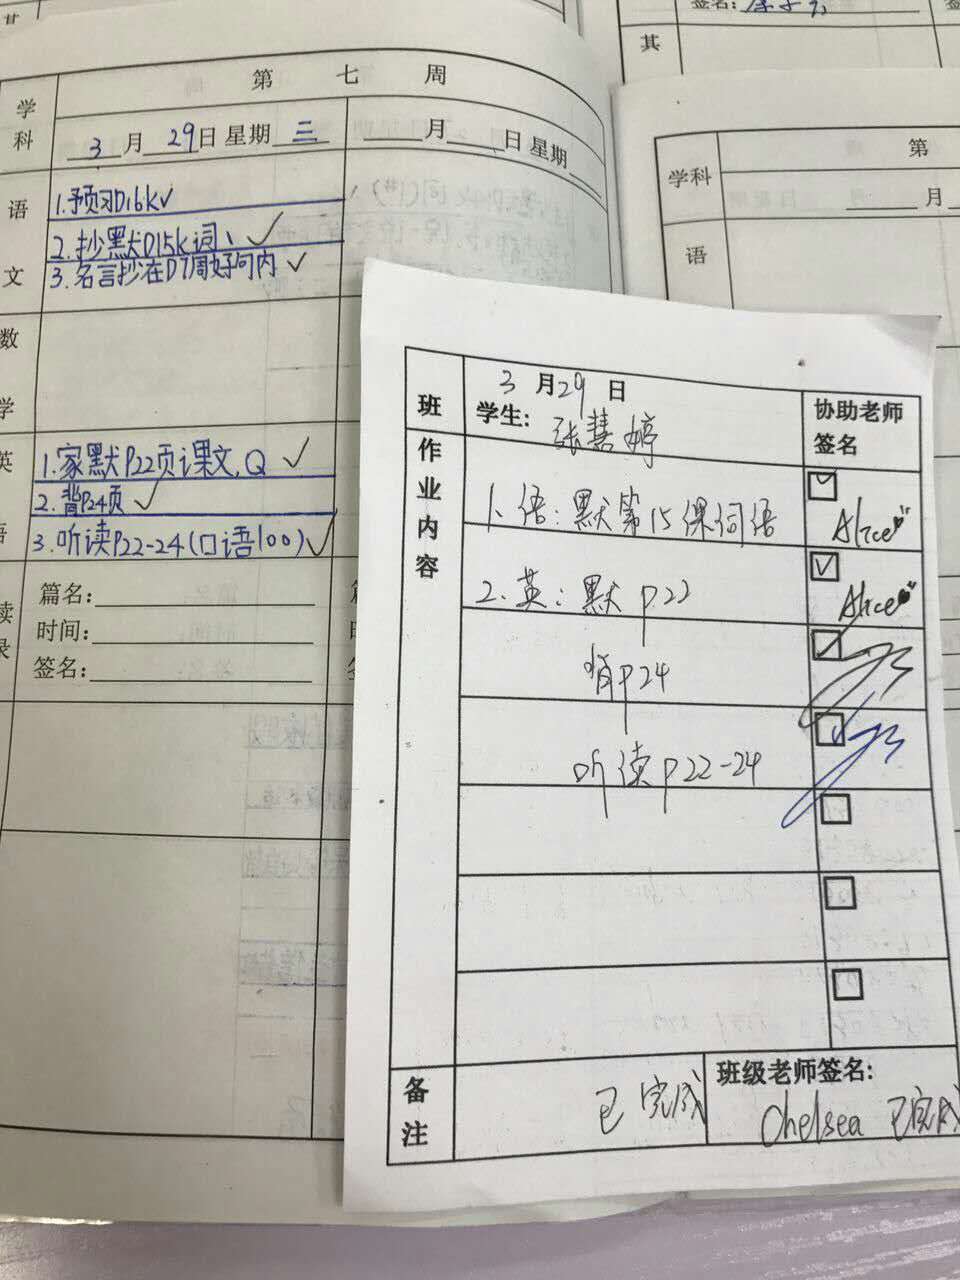 签名:
其
第 七 周
学科
3月29日 星期 三
月 日 星期
语文
1.预习D16k✓
2.抄默D15k词、✓
3.名言抄在D7周好句内✓
数学
英语
1.家默P22页课文,Q ✓
2.背P24页 ✓
3.听读P22-24(口语100)✓
篇名:
时间:
签名:
第
学科
月
语
班
3月29日
学生: 张慧婷
协助老师
签名
作业内容
1、语:默第15课词语
Alice
2、英:默 P22
Alice
背P24
听读P22-24
备注
已完成
班级老师签名:
Chelsea 已完成